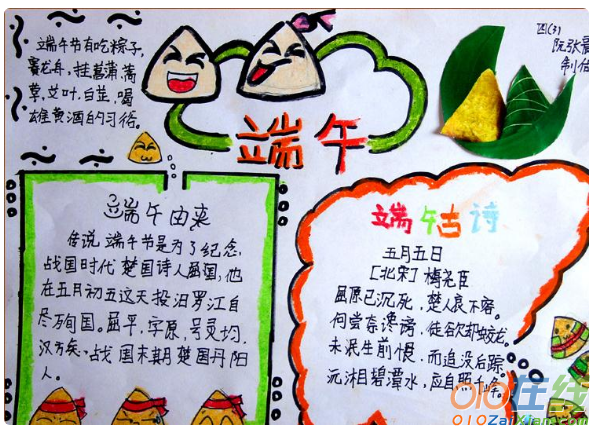 端午节有吃粽子,
赛龙舟,挂菖蒲,蒿
草,艾叶,白芷,喝
雄黄酒的习俗。
端午
四(3)
阮张
制作
端午由来
传说端午节是为了纪念,
战国时代楚国诗人屈原,他
在五月初五这天投汨罗江自
尽万徇国。屈平,字原,号灵均,
汉方矦,战国末期楚国丹阳
人。
端午古诗
五月五日
[北宋] 梅尧臣
屈原已沉死,楚人哀不容。
何尝奈谗谤,徒欲却蛟龙。
未泯生前恨,而追没后踪。
沅湘碧潭水,应自照千峰。
010在线
010ZaiXian.com